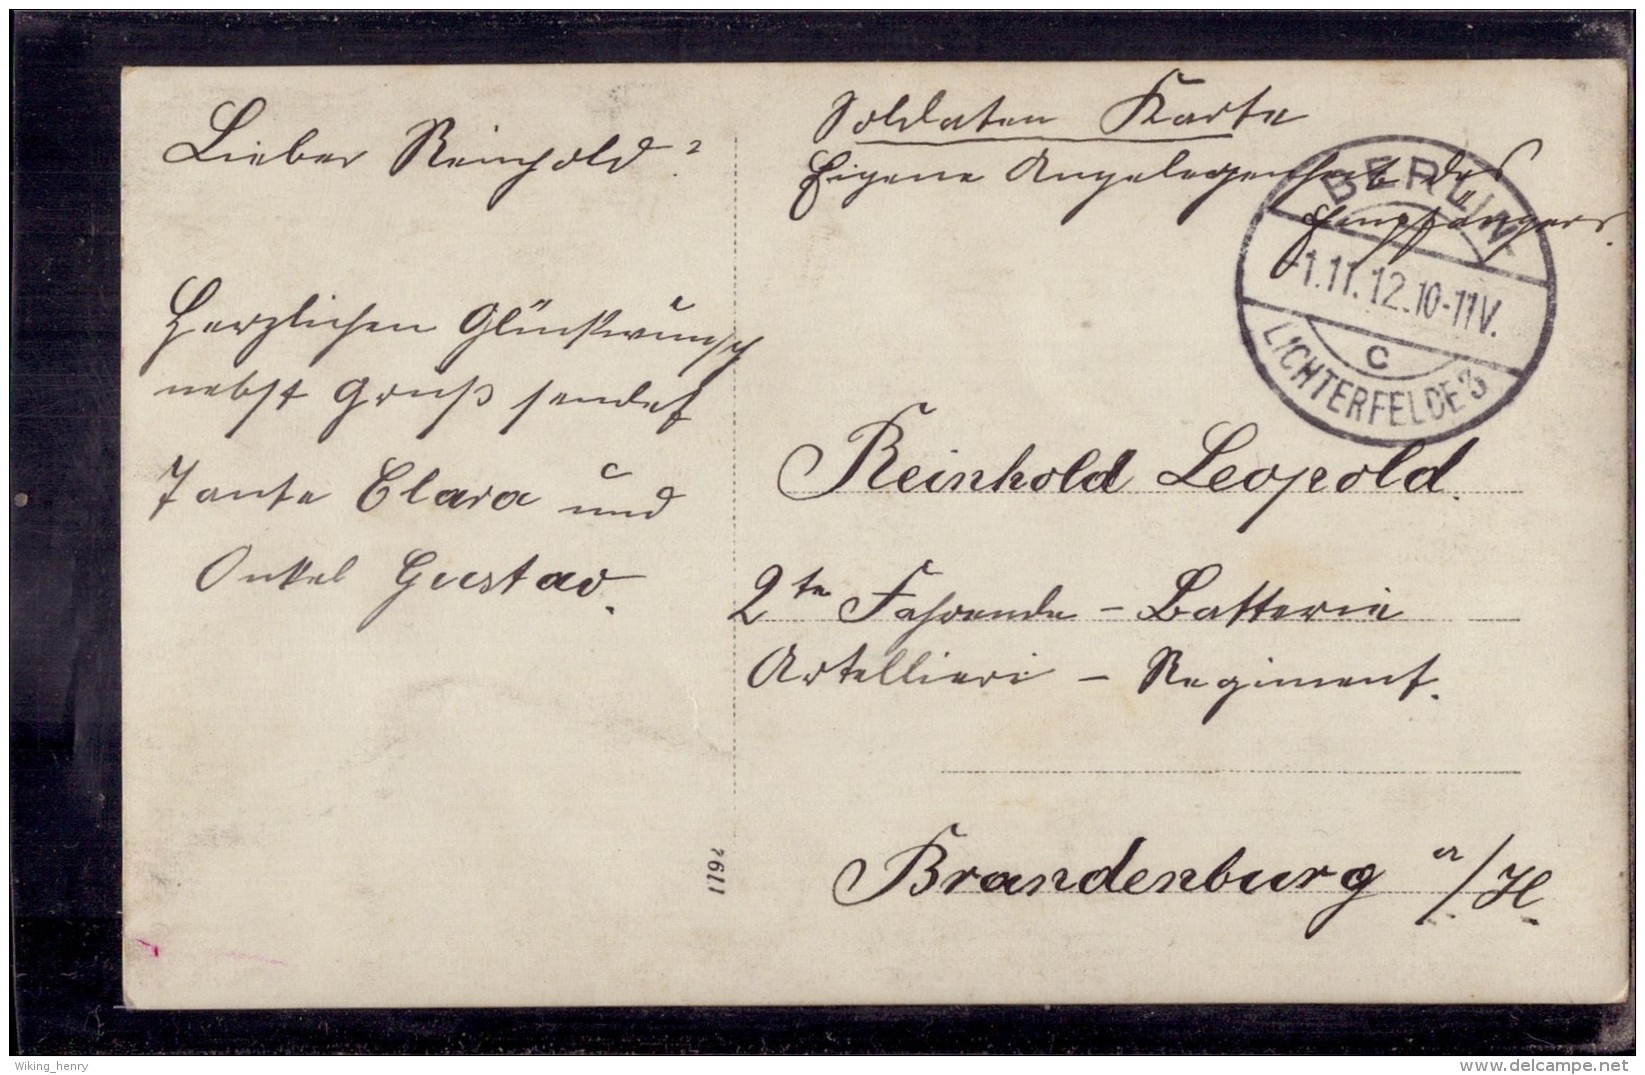 Lieber Reinhold?
Herzlichen Glückwunsch
nebst Gruß sendet
Tante Clara und
Onkel Gustav.
Soldaten Karte
Eigene Angelegenheit des
Empfängers.
BERLIN
-1.11.12.10-11V.
C
LICHTERFELDE 3
Reinhold Leopold.
2te Fahrende - Batterie
Artellieri - Regiment.
Brandenburg a/H.
1192
Wiking_henry
delcampe.net